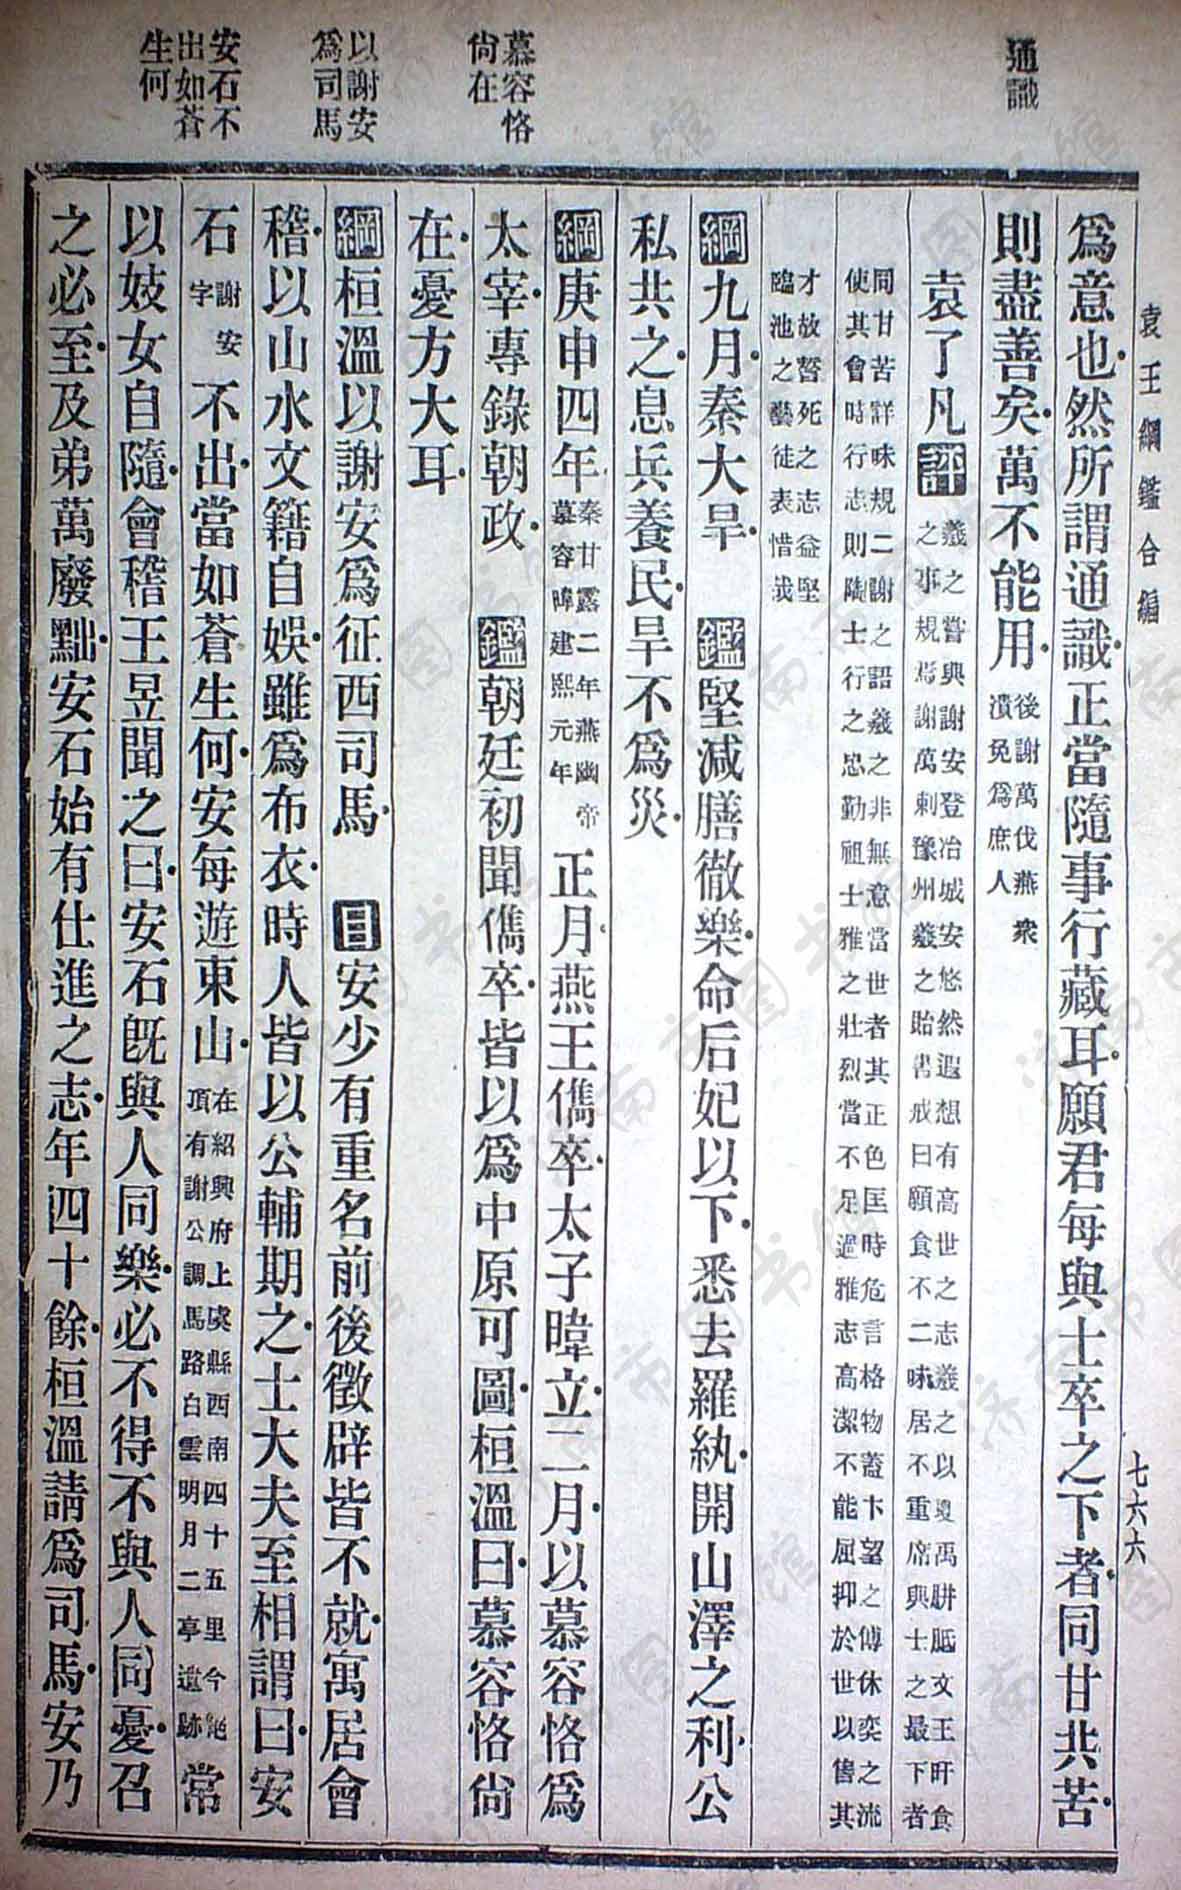 袁王綱鑑合編
七六六
通識
慕容恪
尙在
以謝安
爲司馬
安石不
出如蒼
生何
爲意也然所謂通識正當隨事行藏耳願君每與士卒之下者同甘共苦
則盡善矣萬不能用 後謝萬伐燕衆潰免爲庶人
袁了凡評 羲之嘗與謝安登冶城安悠然遐想有高世之志羲之以夏禹胼胝文王旰食
之事規焉謝萬刺豫州羲之貽書戒曰願食不二味居不重席與士之最下者
同甘苦詳味規二謝之語羲之非無意當世者其正色匡時危言格物蓋卞望之傅休奕之流
使其會時行志則陶士行之忠勤祖士雅之壯烈當不足過雅志高潔不能屈抑於世以售其
才故誓死之志益堅
臨池之藝徒表惜哉
綱九月秦大旱 鑑堅減膳徹樂命后妃以下悉去羅紈開山澤之利公
私共之息兵養民旱不爲災
綱庚申四年 秦甘露二年燕幽帝慕容暐建熙元年 正月燕王儁卒太子暐立二月以慕容恪爲
太宰專錄朝政 鑑朝廷初聞儁卒皆以爲中原可圖桓溫曰慕容恪尙
在憂方大耳
綱桓溫以謝安爲征西司馬 目安少有重名前後徵辟皆不就寓居會
稽以山水文籍自娛雖爲布衣時人皆以公輔期之士大夫至相謂曰安
石 謝安字 不出當如蒼生何安每遊東山 在紹興府上虞縣西南四十五里今絕項有謝公調馬路白雲明月二亭遺跡 常
以妓女自隨會稽王昱聞之曰安石旣與人同樂必不得不與人同憂召
之必至及弟萬廢黜安石始有仕進之志年四十餘桓溫請爲司馬安乃